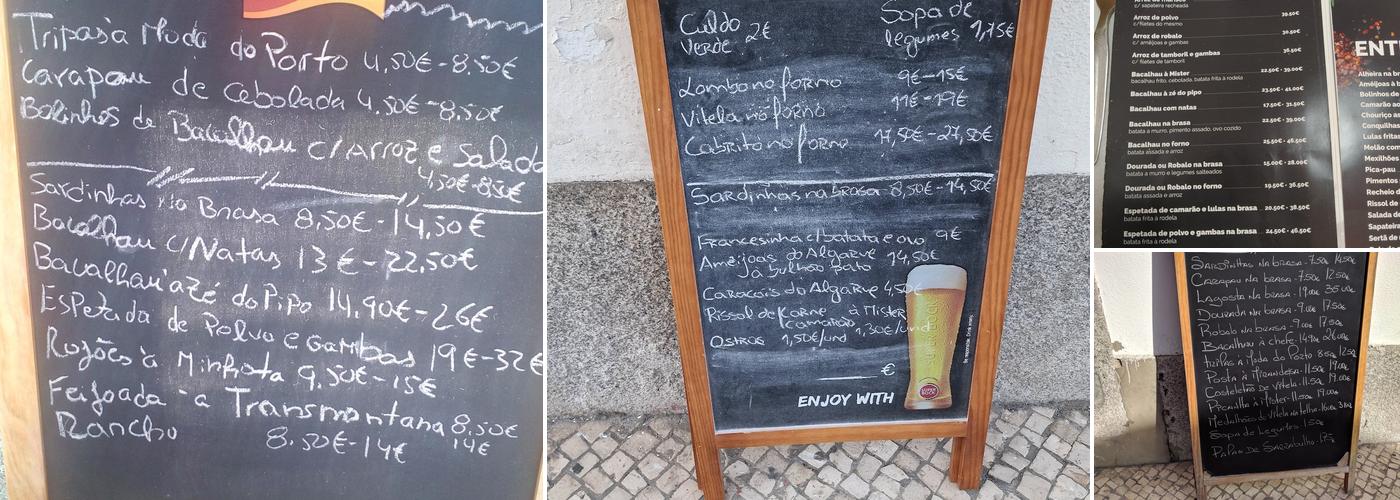 Tripas à Moda do Porto 4,50€-8.50€
Carapau de cebolada 4.50€-8,50€
Bolinhos de Bacalhau c/Arroz e Salada
4,50€-8,50€
Sardinhas na Brasa 8,50€-14,50€
Bacalhau c/Natas 13€-22,50€
Bacalhau à Zé do Pipo 14,90€-26€
Espetada de Polvo e Gambas 19€-32€
Rojões à Minhota 9,50€-15€
Feijoada à Transmontana 8.50€
14€
Rancho 8.50€-14€
Caldo Verde 2€
Sopa de legumes 1,75€
Lombo no forno 9€-15€
Vitela no forno 11€-19€
Cabrito no forno 17,50€-27,50€
Sardinhas na brasa 8,50€-14,50€
Francesinha c/batata e ovo 9€
Amêijoas do Algarve 14,50€
Já Bulhão Pato
Caracois do Algarve 4,50€
Rissol de Karne à Mister
Camarão 1,30€/und
Ostras 1,50€/und
€
ENJOY WITH
SUPER BOCK
c/ sapateira recheada
Arroz de polvo 39.50€
c/filetes do mesmo
Arroz de robalo 30.50€
c/ amêijoas e gambas
Arroz de tamboril e gambas 36.50€
c/ filetes de tamboril
Bacalhau à Mister 22.50€ - 39.00€
bacalhau frito, cebolada, batata frita à rodela
Bacalhau à zé do pipo 23.50€ - 41.00€
Bacalhau com natas 17.50€ - 31.50€
Bacalhau na brasa 22.50€ - 39.00€
batata a murro, pimento assado, ovo cozido
Bacalhau no forno 25.50€ - 46.50€
batata assada e arroz
Dourada ou Robalo na brasa 15.00€ - 28.00€
batata a murro e legumes salteados
Dourada ou Robalo no forno 19.50€ - 36.50€
batata assada e arroz
Espetada de camarão e lulas na brasa 20.50€ - 38.50€
batata frita à rodela
Espetada de polvo e gambas na brasa 24.50€ - 46.50€
batata frita à rodela
ENT
Alheira na b
Amêijoas à b
Bolinhos de
Camarão ao
Chouriço as
Conquilhas
Lulas fritas
Melão com
Mexilhões
Pica-pau
Pimentos
Recheio d
Rissol de
Salada de
Sapateira
Sertã de
Sardinhas na brasa-7.50€ 14.50€
Carapau na brasa-7.50€ 12.50€
Lagosta na brasa-19.00€ 35.00€
Dourada na brasa-9.00€ 17.50€
Robalo na brasa-9.00€ 17.50€
Bacalhau à chefe-14.90€ 26.00€
Tripas à Moda do Porto 8.50€ 12.50€
Posta à Mirandesa-11.50€ 19.00€
Costeletão de Vitela-11.50€ 19.00€
Picanha à Mister-11.50€ 19.00€
Medalhões de Vitela na telha-16.00€
Sopa de Legumes 1.50€
Papas de Sarrabulho-1.75€